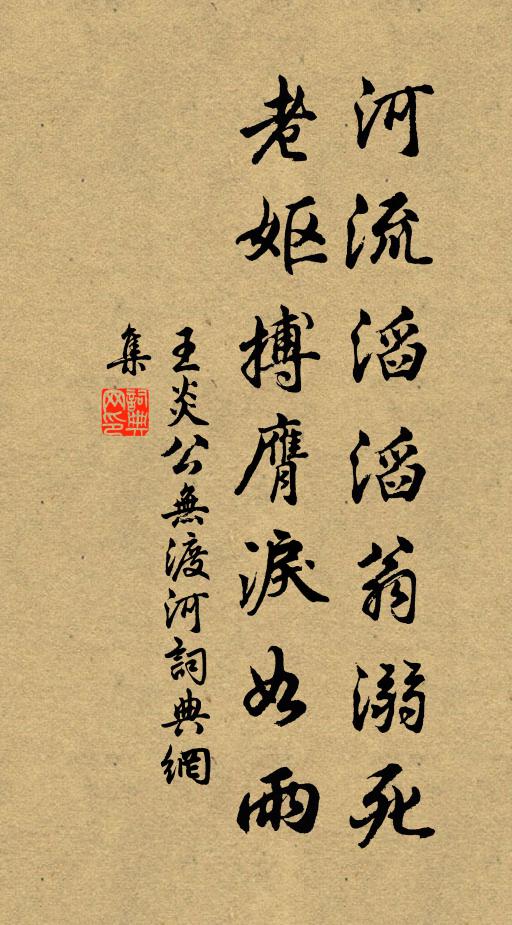 河流滔滔翁溺死
老嫗搏膺淚如雨
王炎公無渡河詞典網
集
詞典
网印